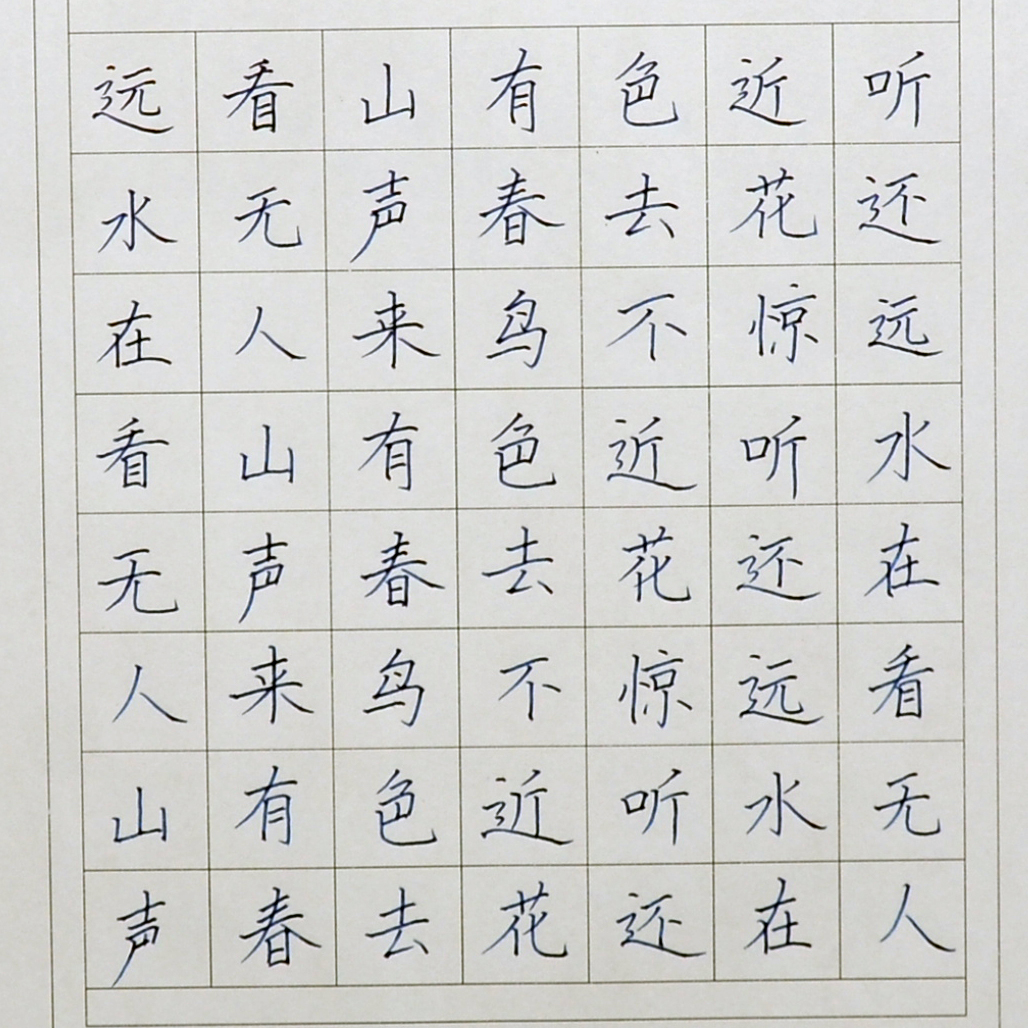 远看山有色近听
水无声春去花还
在人来鸟不惊远
看山有色近听水
无声春去花还在
人来鸟不惊远看
山有色近听水无
声春去花还在人